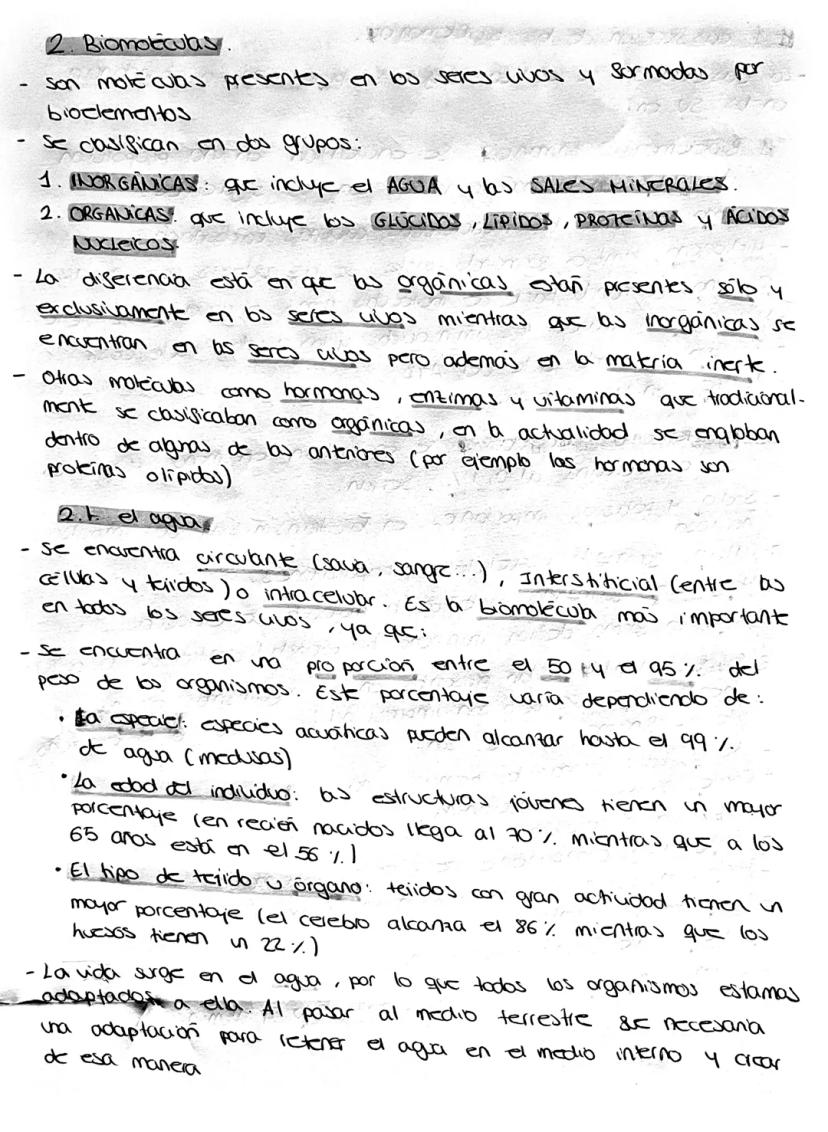 2. Biomoléculas.
- son moléculas presentes en los seres vivos y formadas por
bioelementos
- Se clasifican en dos grupos:
1. INORGÁNICAS: que incluye el AGUA y las SALES MINERALES.
2. ORGÁNICAS: que incluye los GLÚCIDOS, LÍPIDOS, PROTEÍNAS y ÁCIDOS
NUCLEICOS
- La diferencia está en que las orgánicas están presentes sólo y
exclusivamente en los seres vivos mientras que las inorgánicas se
encuentran en los seres vivos pero además en la materia inerte.
- Otras moléculas como hormonas, enzimas y vitaminas que tradicional-
mente se clasificaban como orgánicas, en la actualidad se engloban
dentro de algunas de las anteriores (por ejemplo las hormonas son
proteínas o lípidos)
2.1. el agua.
- Se encuentra circulante (savia, sangre...), Interstiticial (entre las
células y tejidos) o intracelular. Es la biomolécula más importante
en todos los seres vivos, ya que:
- Se encuentra en una proporción entre el 50 y el 95% del
peso de los organismos. Este porcentaje varía dependiendo de:
• La especie: especies acuáticas pueden alcanzar hasta el 99%
de agua (medusas)
• La edad del individuo: las estructuras jóvenes tienen un mayor
porcentaje (en recién nacidos llega al 70% mientras que a los
65 años está en el 56%)
• El tipo de tejido u órgano: tejidos con gran actividad tienen un
mayor porcentaje (el cerebro alcanza el 86% mientras que los
huesos tienen un 22%)
- La vida surge en el agua, por lo que todos los organismos estamos
adaptados a ella. Al pasar al medio terrestre fue necesaria
una adaptación para retener el agua en el medio interno y crear
de esa manera